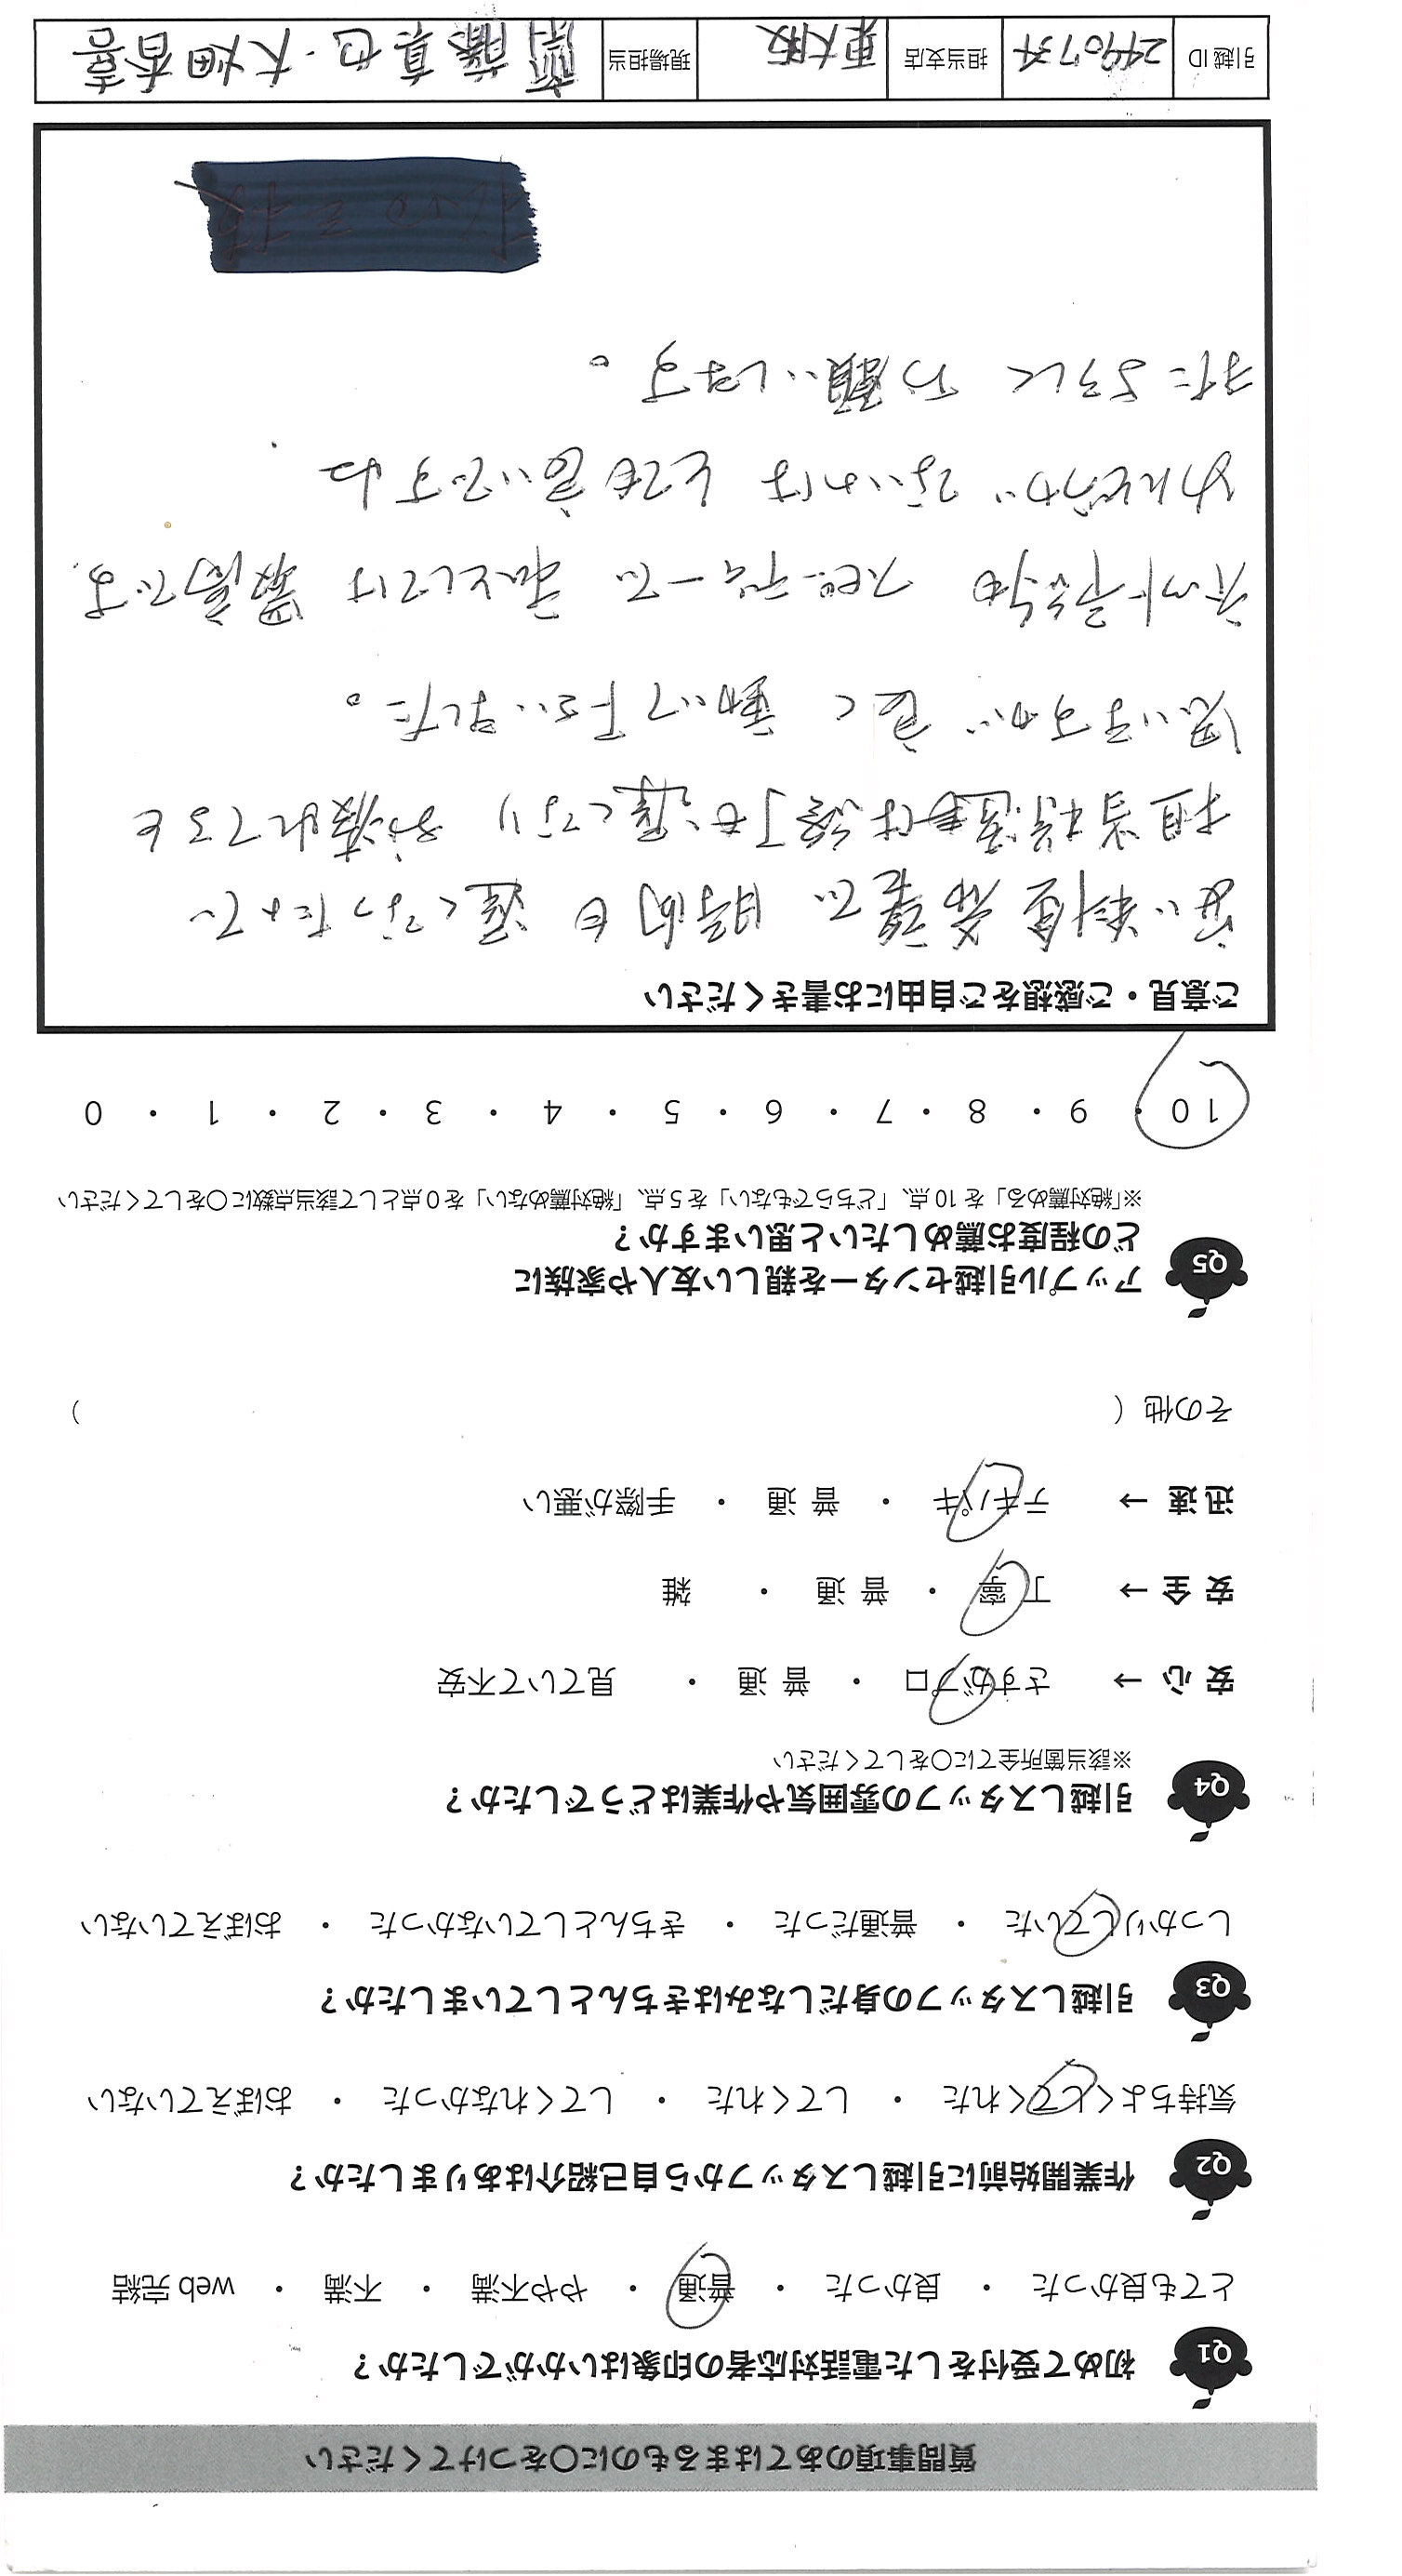 質問事項のあてはまるものに○をつけてください
Q1 初めて受付をした電話対応者の印象はいかがでしたか？
とても良かった ・ 良かった ・ 普通 ・ やや不満 ・ 不満 ・ web 完結
Q2 作業開始前に引越しスタッフから自己紹介はありましたか？
気持ちよくしてくれた ・ してくれた ・ してくれなかった ・ おぼえていない
Q3 引越しスタッフの身だしなみはきちんとしていましたか？
しっかりしていた ・ 普通だった ・ きちんとしていなかった ・ おぼえていない
Q4 引越しスタッフの雰囲気や作業はどうでしたか？
※該当箇所全てに○をしてください
安 心 → さすがプロ ・ 普 通 ・ 見ていて不安
安 全 → 丁 寧 ・ 普 通 ・ 雑
迅 速 → テキパキ ・ 普 通 ・ 手際が悪い
その他（ ）
Q5 アップル引越センターを親しい友人や家族に
どの程度お薦めしたいと思いますか？
※「絶対薦める」を 10 点、「どちらでもない」を 5 点、「絶対薦めない」を 0 点として該当点数に○をしてください
10 ・ 9 ・ 8 ・ 7 ・ 6 ・ 5 ・ 4 ・ 3 ・ 2 ・ 1 ・ 0
ご意見・ご感想をご自由にお書きください
安い料金希望で 時間も遅くなったので
担当将達は終了も遅くなり お疲れてると
思いますが 良く動いて下さいました。
ネット予約も スピーディーで 私としては 最高です。
めんどうが ないのは とても良いですね
またよろしく お願いします。
引越 ID 2490734 担当支店 東大阪 現場担当 齋藤真也・大畑香喜